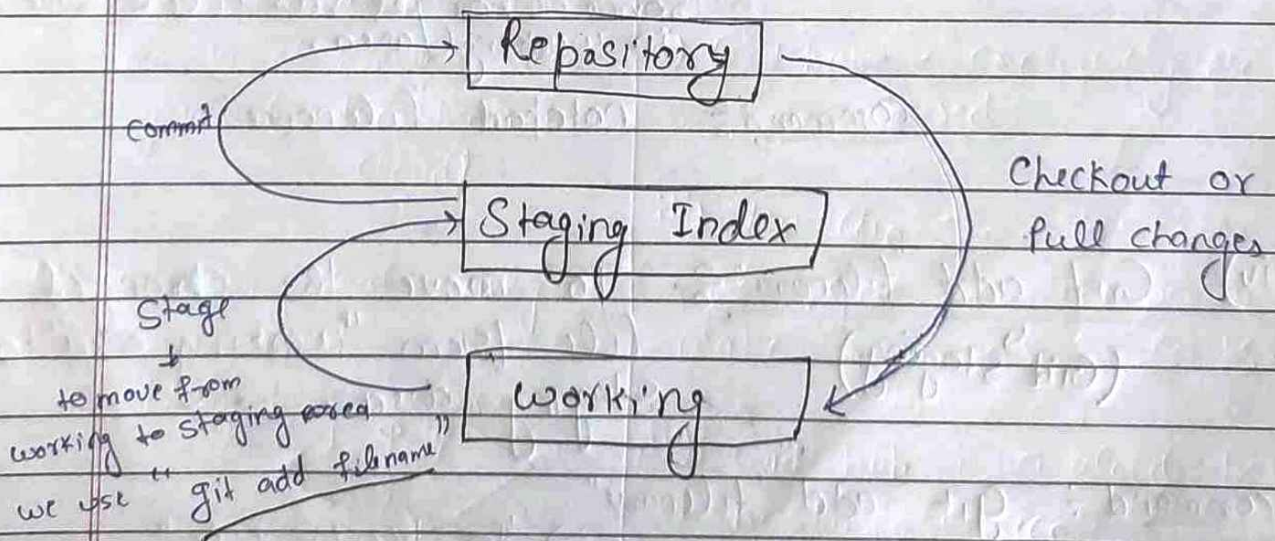 Repository
commit
Checkout or
Pull changes
Staging Index
Stage
to move from
working to staging area
we use " git add filename"
working